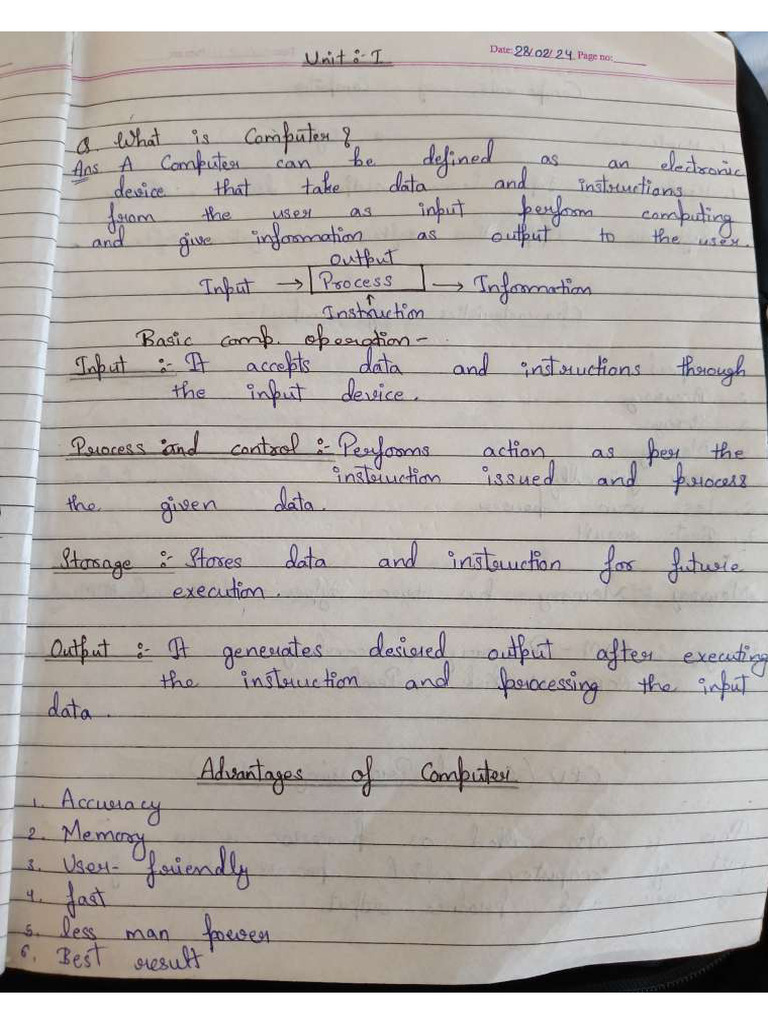 Unit :- I
Date: 28/02/24 Page no:
Q. What is Computer ?
Ans A Computer can be defined as an electronic
device that take data and instructions
from the user as input perform computing
and give information as output to the user.
output
Input → Process → Information
↑
Instruction
Basic comp. operation -
Input :- It accepts data and instructions through
the input device.
Process and control :- Performs action as per the
instruction issued and process
the given data.
Storage :- Stores data and instruction for future
execution.
Output :- It generates desiered output after executing
the instruction and processing the input
data.
Advantages of Computer
1. Accuracy
2. Memory
3. User-friendly
4. fast
5. less man power
6. Best result